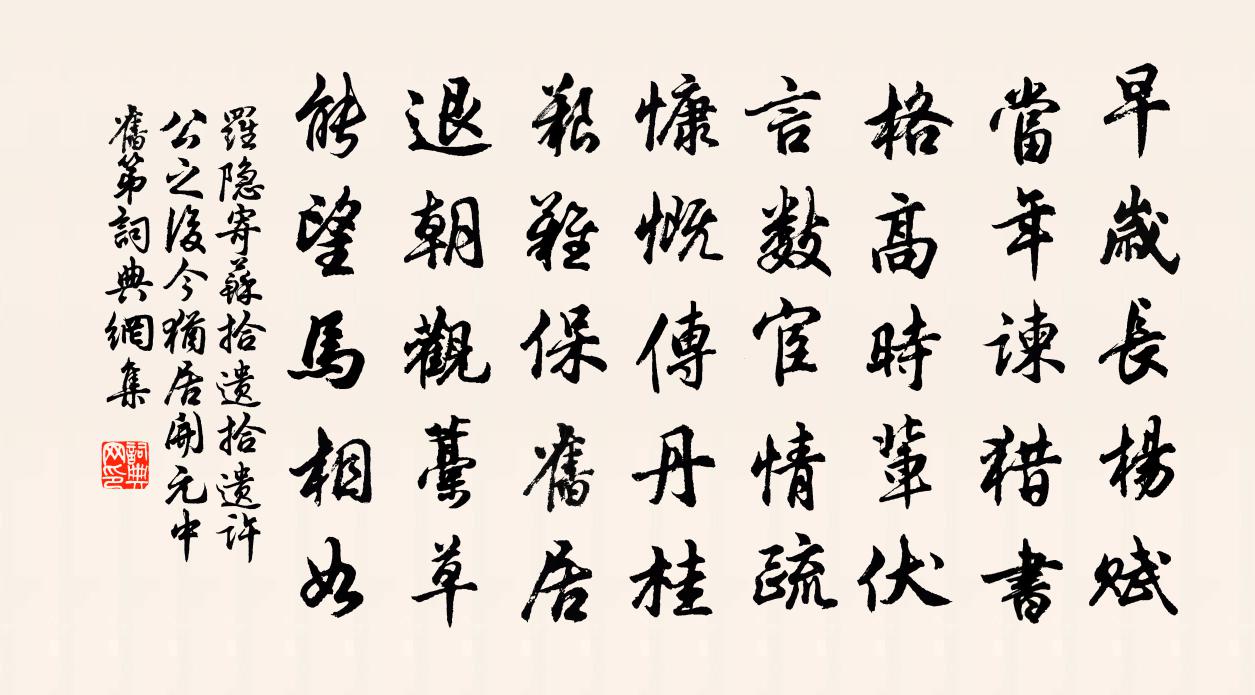 早歲長楊賦
當年諫猎書
格高時輩伏
言數宦情疏
慷慨傳丹桂
艱難保舊居
退朝觀藁草
能望馬相如
羅隐寄蘇拾遗拾遗許
公之後今猶居開元中
舊第詞典網集
詞典网印